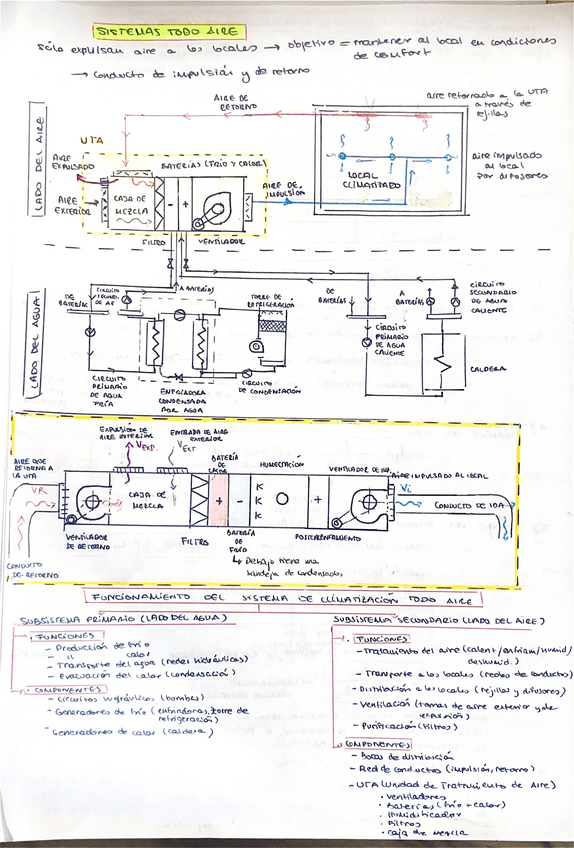 SISTEMAS TODO AIRE
Sólo expulsan aire a los locales → objetivo = mantener al local en condiciones
de confort
→ conducto de impulsión y de retorno
AIRE DE
RETORNO
aire retornado a la UTA
a través de
rejillas
LADO DEL AIRE
UTA
AIRE
EXPULSADO
BATERÍAS (FRÍO Y CALOR)
LOCAL
CLIMATIZADO
aire impulsado
al local
por difusores
AIRE
EXTERIOR
CAJA DE
MEZCLA
- +
AIRE DE
IMPULSIÓN
FILTRO
VENTILADOR
LADO DEL AGUA
DE
BATERÍAS
CIRCUITO
SECUND.
DE AF
A BATERÍAS
TORRE DE
REFRIGERACIÓN
DE
BATERÍAS
A
BATERÍAS
CIRCUITO
SECUNDARIO
DE AGUA
CALIENTE
CIRCUITO
PRIMARIO
DE AGUA
CALIENTE
CALDERA
CIRCUITO
PRIMARIO
DE AGUA
FRÍA
ENFRIADORA
CONDENSADA
POR AGUA
CIRCUITO
DE CONDENSACIÓN
EXPULSIÓN DE
AIRE INTERIOR
ENTRADA DE AIRE
EXTERIOR
AIRE QUE
RETORNA A
LA UTA
VEXP.
VEXT
BATERÍA
DE
CALOR
HUMECTACIÓN
VENTILADOR DE IMP.
AIRE IMPULSADO AL LOCAL
VR
CAJA DE
MEZCLA
+ - K K K +
Vi
CONDUCTO DE IDA
VENTILADOR
DE RETORNO
FILTRO
BATERÍA
DE
FRÍO
POSTCALENTAMIENTO
CONDUCTO
DE RETORNO
↳ Debajo tiene una
bandeja de condensados
FUNCIONAMIENTO DEL SISTEMA DE CLIMATIZACIÓN TODO AIRE
SUBSISTEMA PRIMARIO (LADO DEL AGUA)
· FUNCIONES
- Producción de frío
- " calor
- Transporte del agua (redes hidráulicas)
- Evacuación del calor (condensación)
· COMPONENTES
- Circuitos hidráulicos (bombas)
- Generadores de frío (enfriadoras, torre de
refrigeración)
- Generadores de calor (caldera)
SUBSISTEMA SECUNDARIO (LADO DEL AIRE)
· FUNCIONES
- Tratamiento del aire (calent/enfriam/humid/
deshumid.)
- Transporte a los locales (redes de conductos)
- Distribución a los locales (rejillas y difusores)
- Ventilación (tomas de aire exterior y de
expulsión)
- Purificación (filtros)
COMPONENTES
- Bocas de distribución
- Red de conductos (impulsión, retorno)
- UTA (Unidad de Tratamiento de Aire)
· Ventiladores
· Baterías (frío + calor)
· Humidificador
· Filtros
· Caja de mezcla